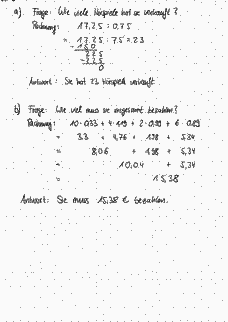 a) Frage: Wie viele Hörspiele hat sie verkauft?
Rechnung: 17,25 : 0,75
= 1725 : 75 = 23
- 150
225
- 225
0
Antwort: Sie hat 23 Hörspiele verkauft.
b) Frage: Wie viel muss sie insgesamt bezahlen?
Rechnung: 10 · 0,33 + 4 · 1,19 + 2 · 0,99 + 6 · 0,89
= 3,3 + 4,76 + 1,98 + 5,34
= 8,06 + 1,98 + 5,34
= 10,04 + 5,34
= 15,38
Antwort: Sie muss 15,38 € bezahlen.